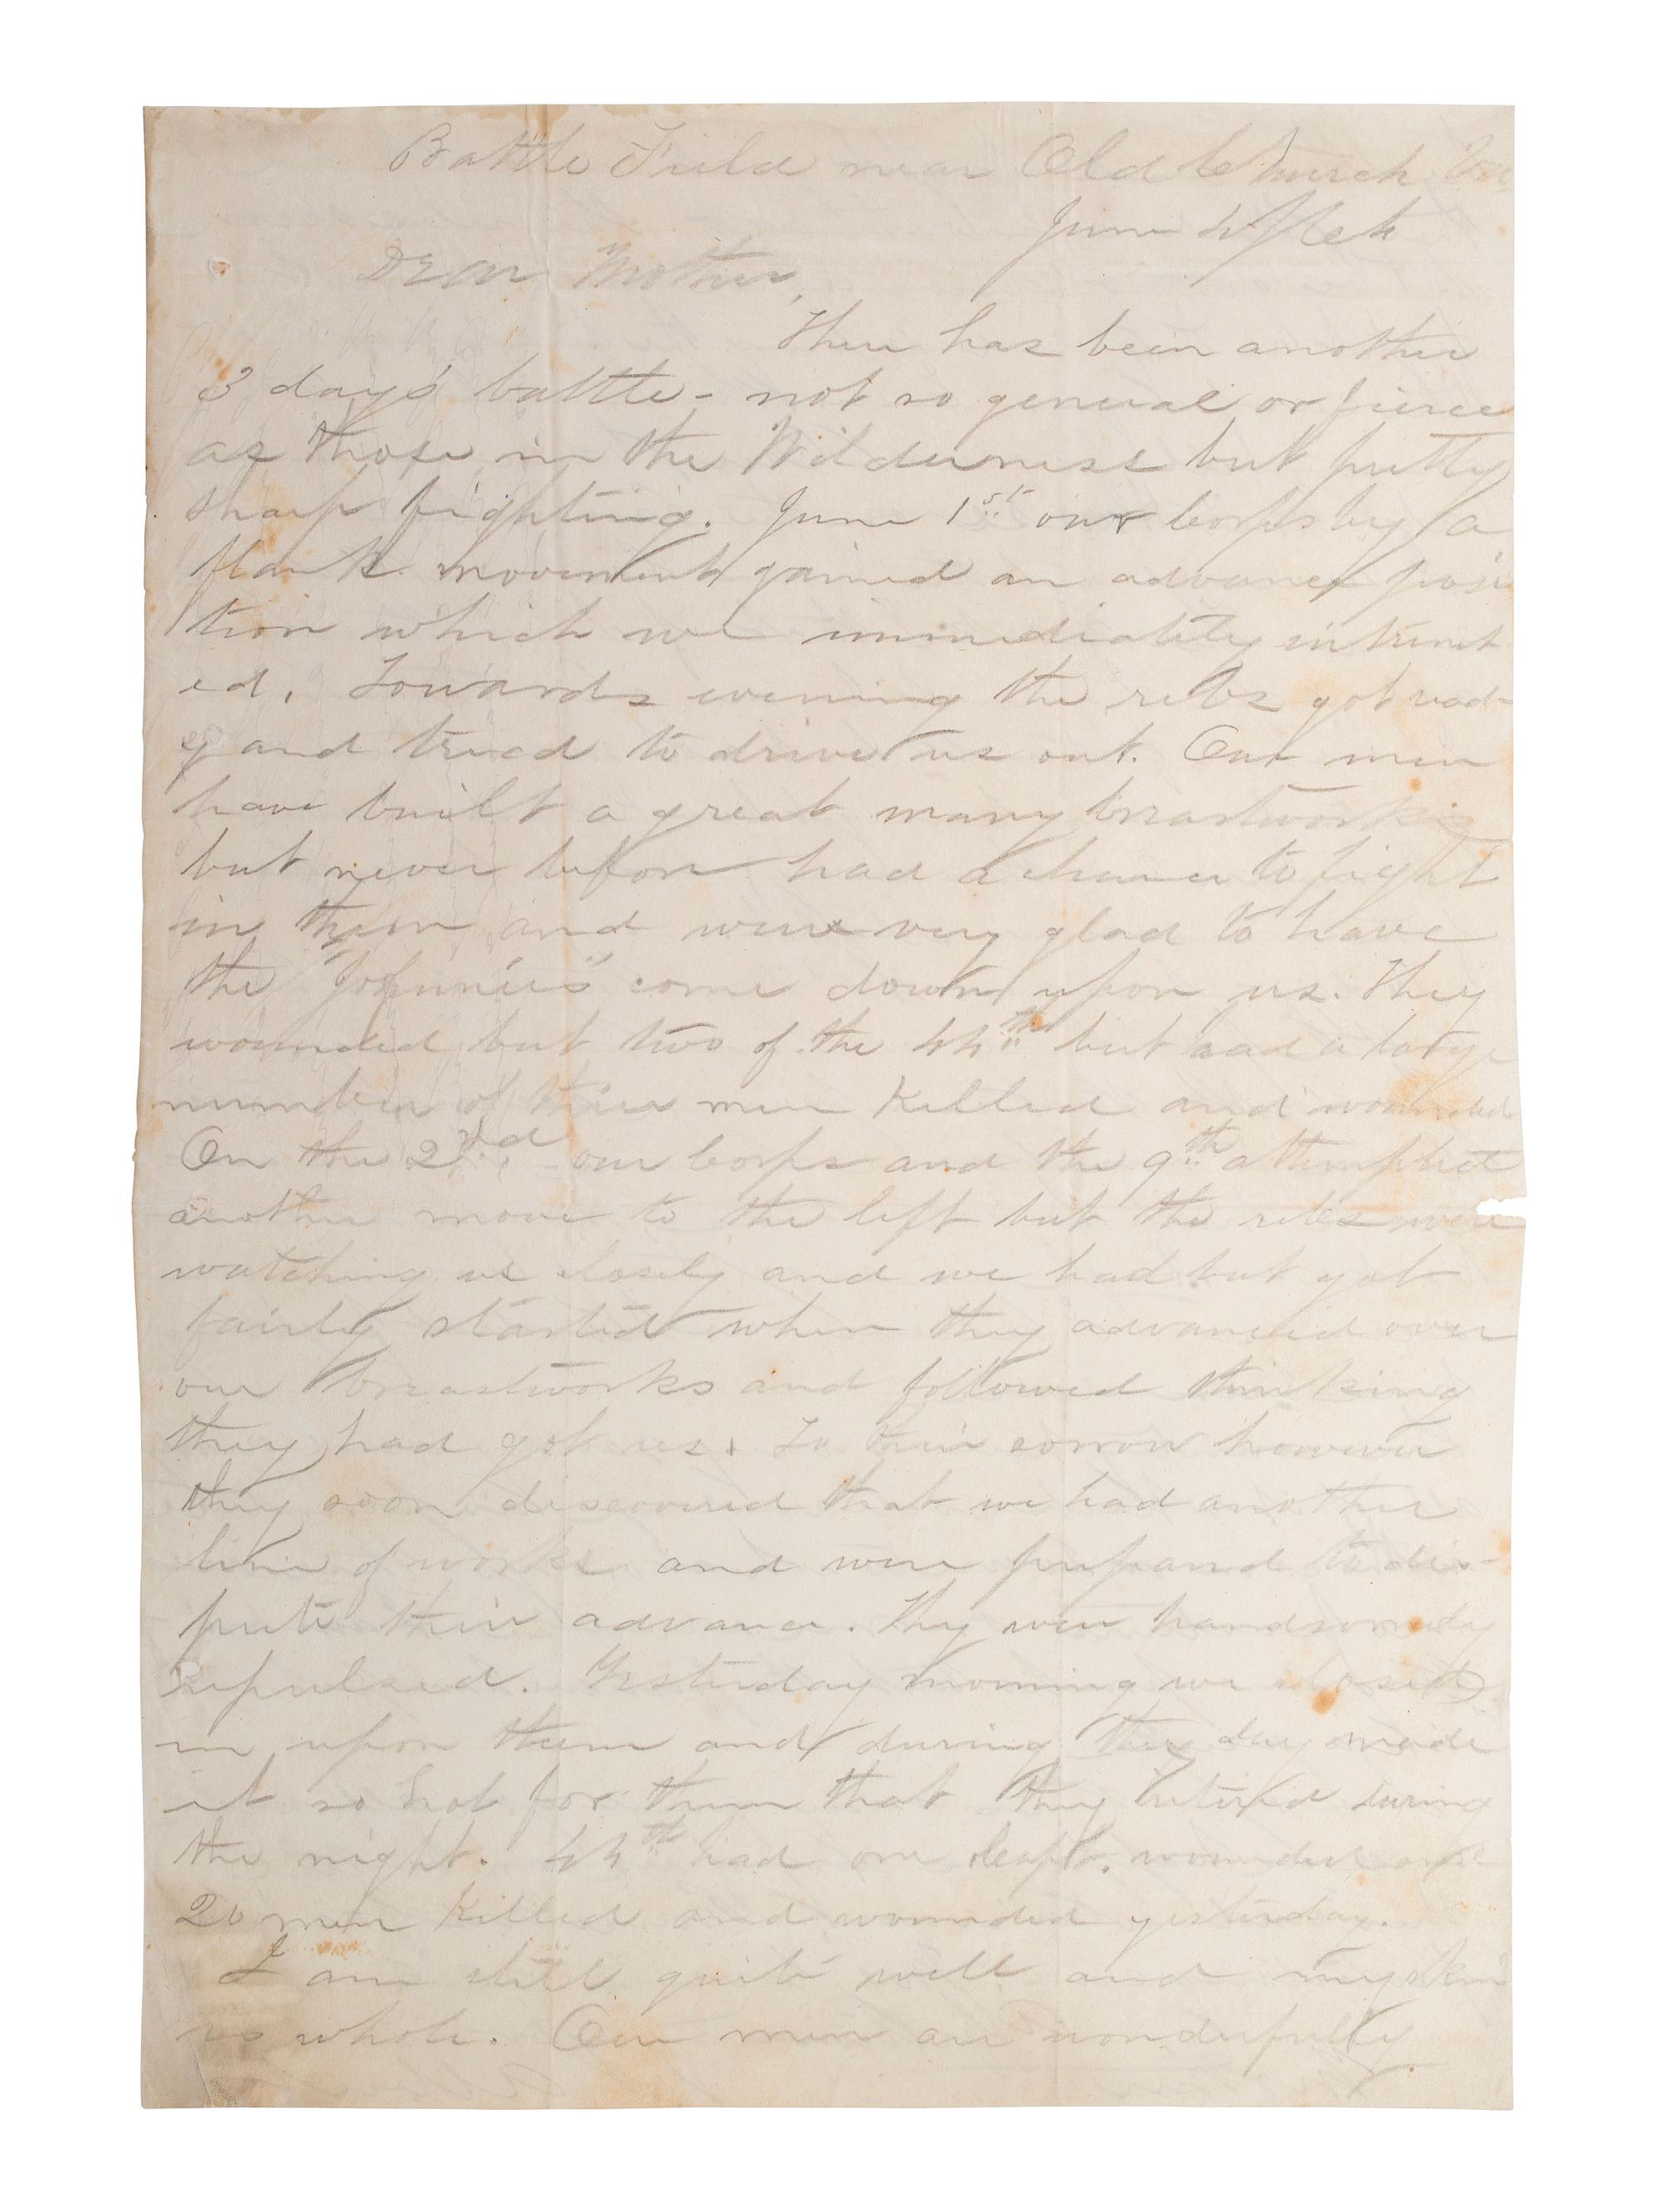 Battle Field near Old Church Va
June 4th
Dear Mother,
There has been another
3 days' battle - not so general or fierce
as those in the Wilderness but pretty
sharp fighting. June 1st our Corps by a
flank movement gained an advance posi
tion which we immediately intrench
ed. Towards evening the rebs got read-
y and tried to drive us out. Our men
have built a great many breastworks
but never before had a chance to fight
in them and were very glad to have
the "Johnnies" come down upon us. They
wounded but two of the 44th but had a large
number of their men killed and wounded
On the 2nd our Corps and the 9th attempted
another move to the left but the rebs were
watching us closely and we had but got
fairly started when they advanced over
our breastworks and followed thinking
they had got us. To their sorrow however
they soon discovered that we had another
line of works and were prepared to dis-
pute their advance. They were handsomely
repulsed. Yesterday morning we closed
in upon them and during the day made
it so hot for them that they retired during
the night. 44th had one Capt. wounded and
20 men killed and wounded yesterday.
I am still quite well and my skin
is whole. Our men are wonderfully